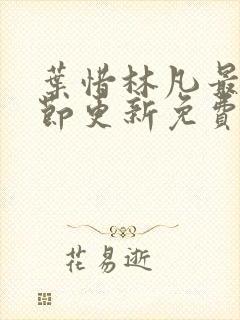 葉惜林凡最
節更新免費
花易逝